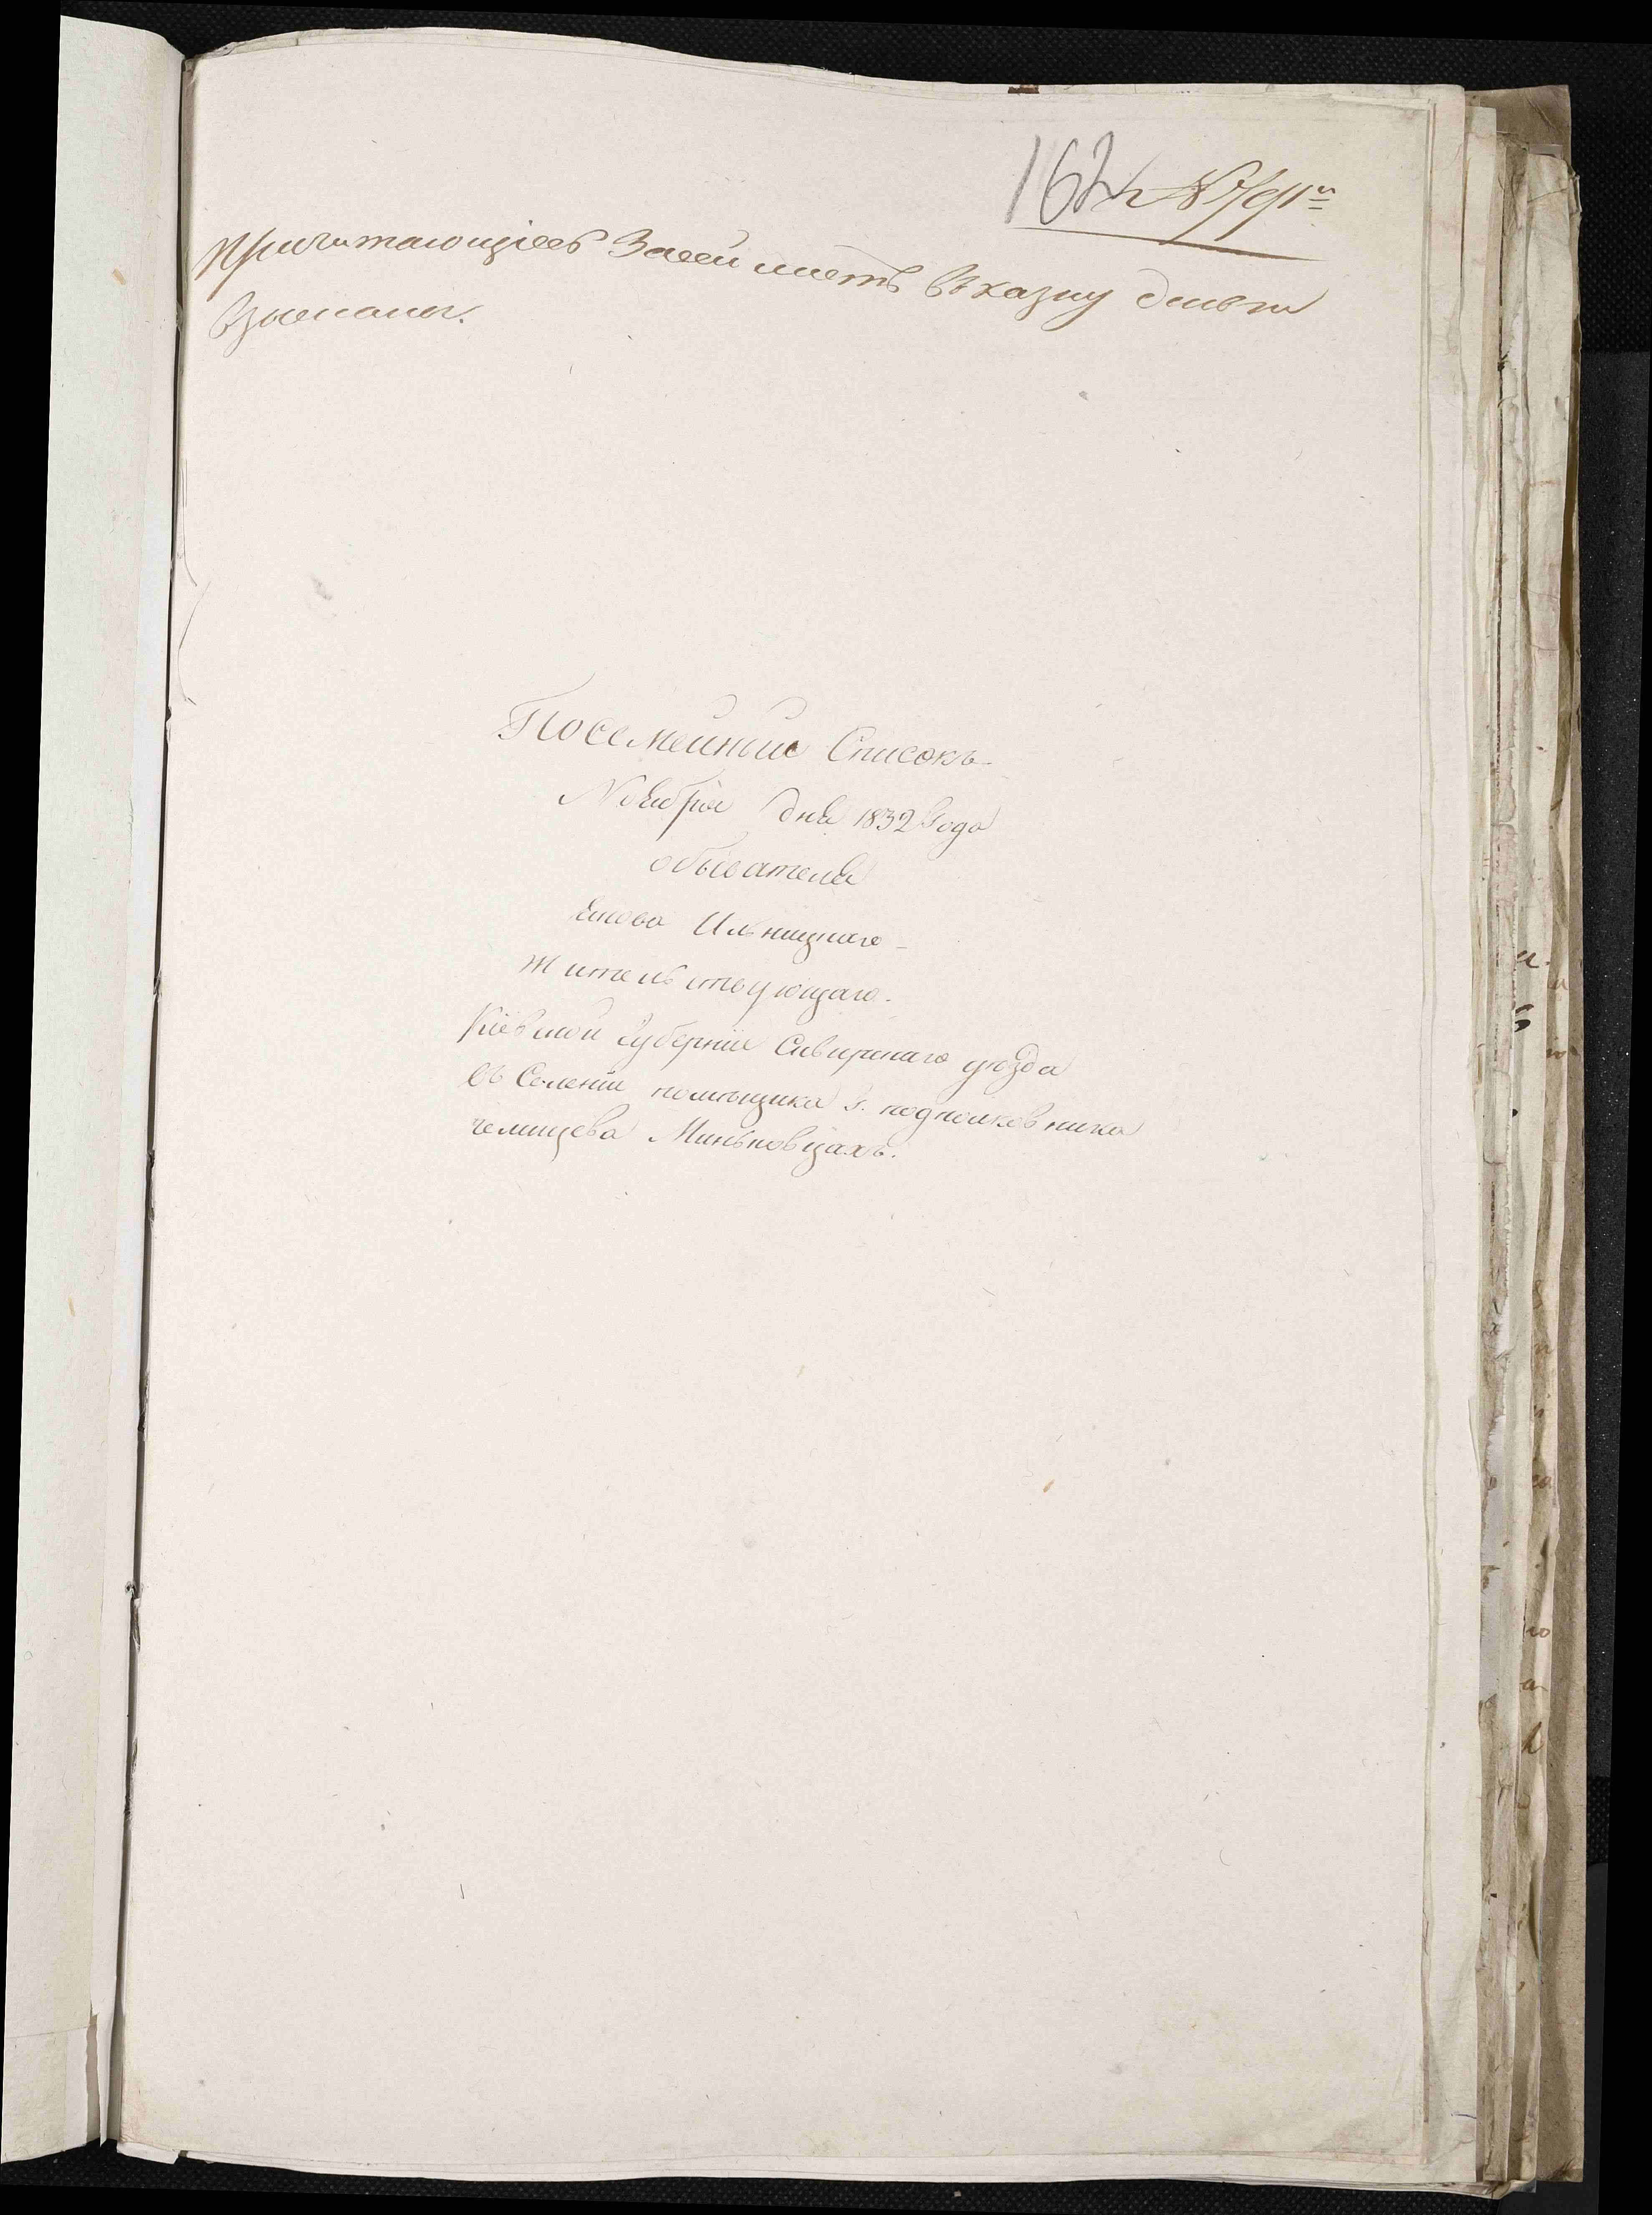 162
Причитающіеся За сей листъ въ казну деньги
Взысканы.
Посемейный Списокъ
Ноября дня 1832 Года
обывателя
Якова Ильницкаго
жительствующаго
Кіевской Губерніи Сквирскаго уѣзда
въ Селеніи помѣщика Г. подполковника
челищева Миньковцахъ.